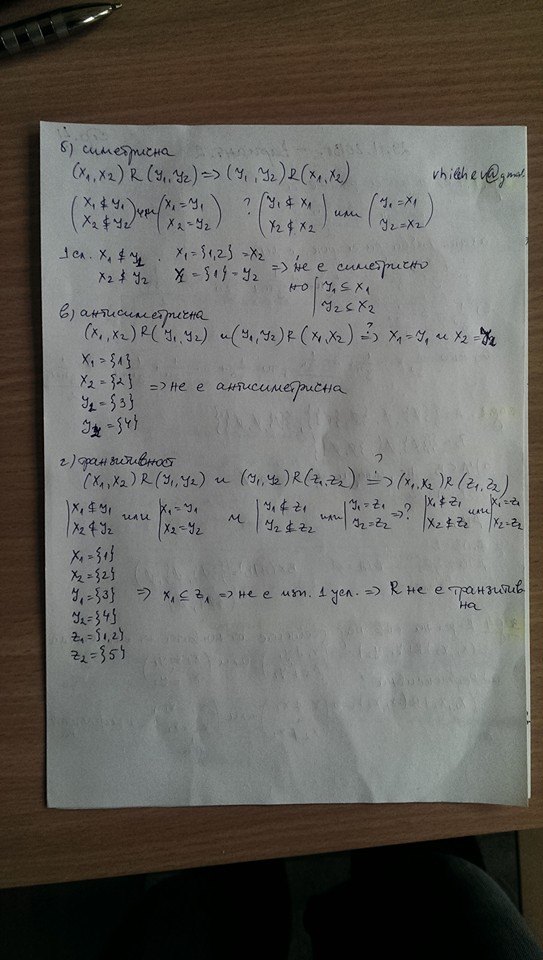 б) симетрична
(x₁,x₂) R (y₁,y₂) => (y₁,y₂) R (x₁,x₂) vhilchev@gmail.
(x₁ ⊄ y₁ x₂ ⊄ y₂) или (x₁ = y₁ x₂ = y₂) ? (y₁ ⊄ x₁ x₂ ⊄ x₂) или (y₁ = x₁ y₂ = x₂)
1 сл. x₁ ⊄ y₁ . x₁ = {1,2} = x₂
x₂ ⊄ y₂ = {1} = y₂ => не е симетрично
но | y₁ ⊆ x₁
y₂ ⊆ x₂
в) антисиметрична
(x₁,x₂) R (y₁,y₂) и (y₁,y₂) R (x₁,x₂) ?=> x₁ = y₁ и x₂ = y₂
x₁ = {1}
x₂ = {2} => не е антисиметрична
y₁ = {3}
= {4}
г) транзитивност
(x₁,x₂) R (y₁,y₂) и (y₁,y₂) R (z₁,z₂) ?=> (x₁,x₂) R (z₁,z₂)
| x₁ ⊄ y₁ x₂ ⊄ y₂ или | x₁ = y₁ x₂ = y₂ и | y₁ ⊄ z₁ y₂ ⊄ z₂ или | y₁ = z₁ y₂ = z₂ =>? | x₁ ⊄ z₁ x₂ ⊄ z₂ или | x₁ = z₁ x₂ = z₂
x₁ = {1}
x₂ = {2}
y₁ = {3} => x₁ ⊆ z₁ => не е изп. 1 усл. => R не е транзитив
на
y₂ = {4}
z₁ = {1,2}
z₂ = {5}